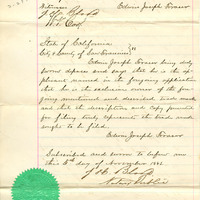 Witnesses
Edwin Joseph Fraser
State of California
City & County of San Francisco } ss
Edwin Joseph Fraser being duly
sworn deposes and says that he is the
applicant named in the foregoing application
that he is the exclusive owner of the fore-
going mentioned and described trade mark
and that the description and copy presented
for filing truly represents the trade mark
sought to be filed.
Edwin Joseph Fraser
Subscribed and sworn to before me
this 8th day of November 188
Notary Public